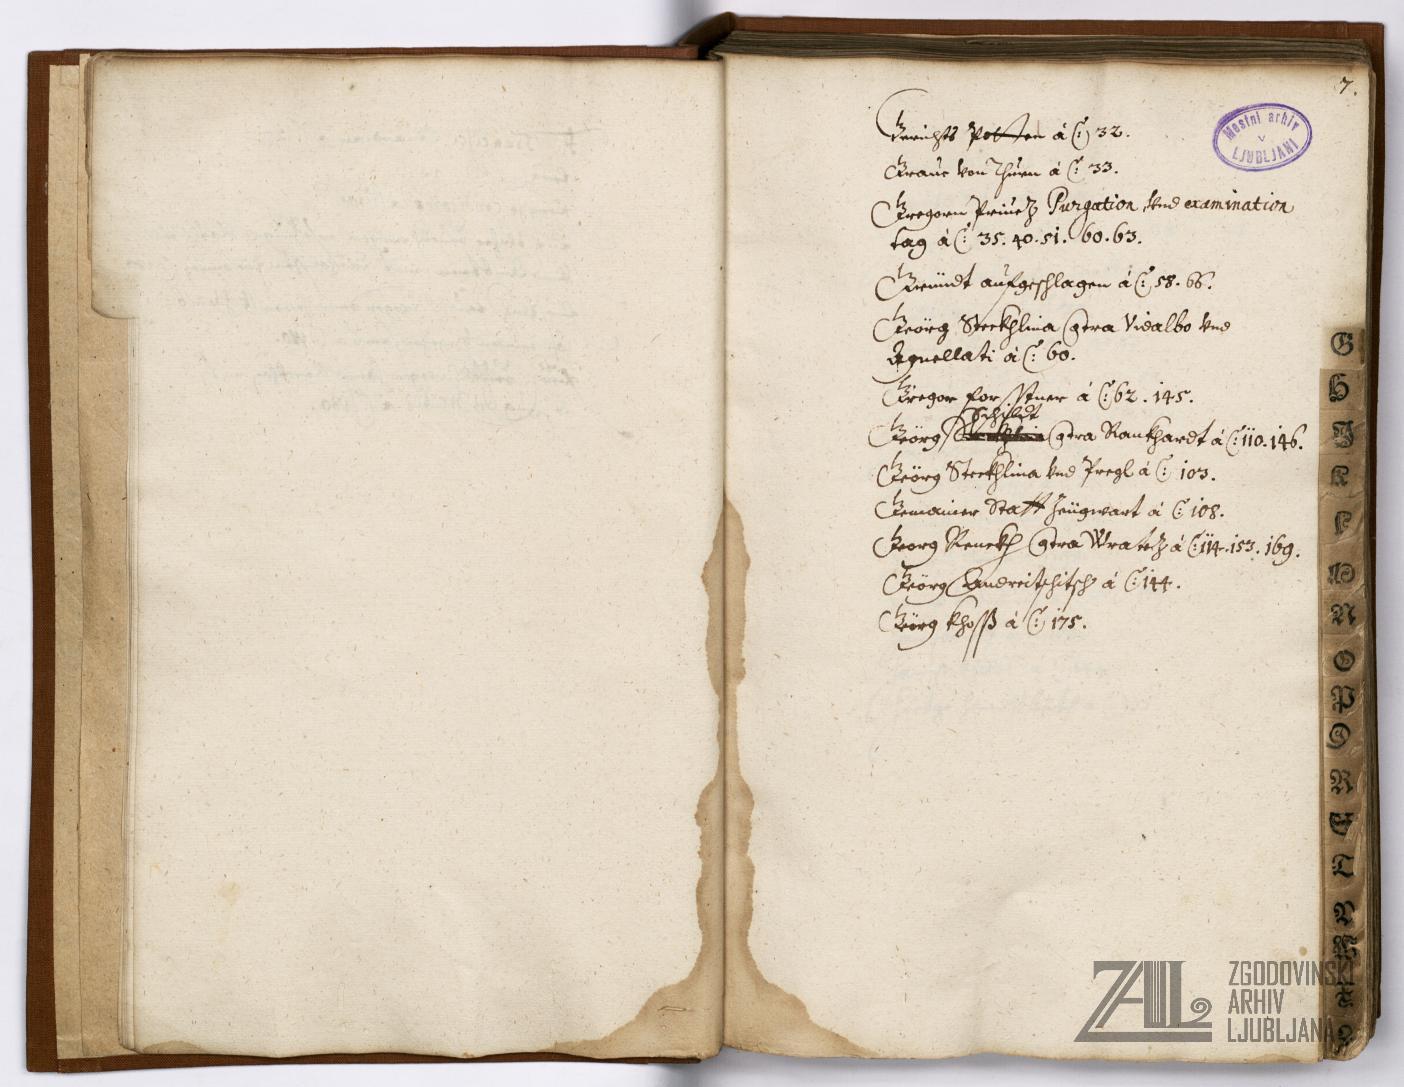 7.
Mestni arhiv
v
LJUBLJANI
Gerichts Potten á C: 32.
Graue von Thurn á C: 33.
Gregorn Prinetz Purgation vnd examination
tag á C: 35. 40. 51. 60. 63.
Gründt aufgeschlagen á C: 58. 66.
Geörg Steckhlina Contra Vidalbo vnd
Agnellati á C: 60.
Gregor Forsstner á C: 62. 145.
Schildt
Geörg Contra Rankhardt á C: 110. 146.
Geörg Steckhlina vnd Pregl á C: 103.
Gemainer Statt Zeügwart á C: 108.
Georg Renckh Contra Wratez á C: 114. 153. 169.
Geörg Andreitschitsch á C: 144.
Geörg Khoss á C: 175.
G
H
I
K
L
M
N
O
P
Q
R
S
T
V
W
ZAL ZGODOVINSKI
ARHIV
LJUBLJANA